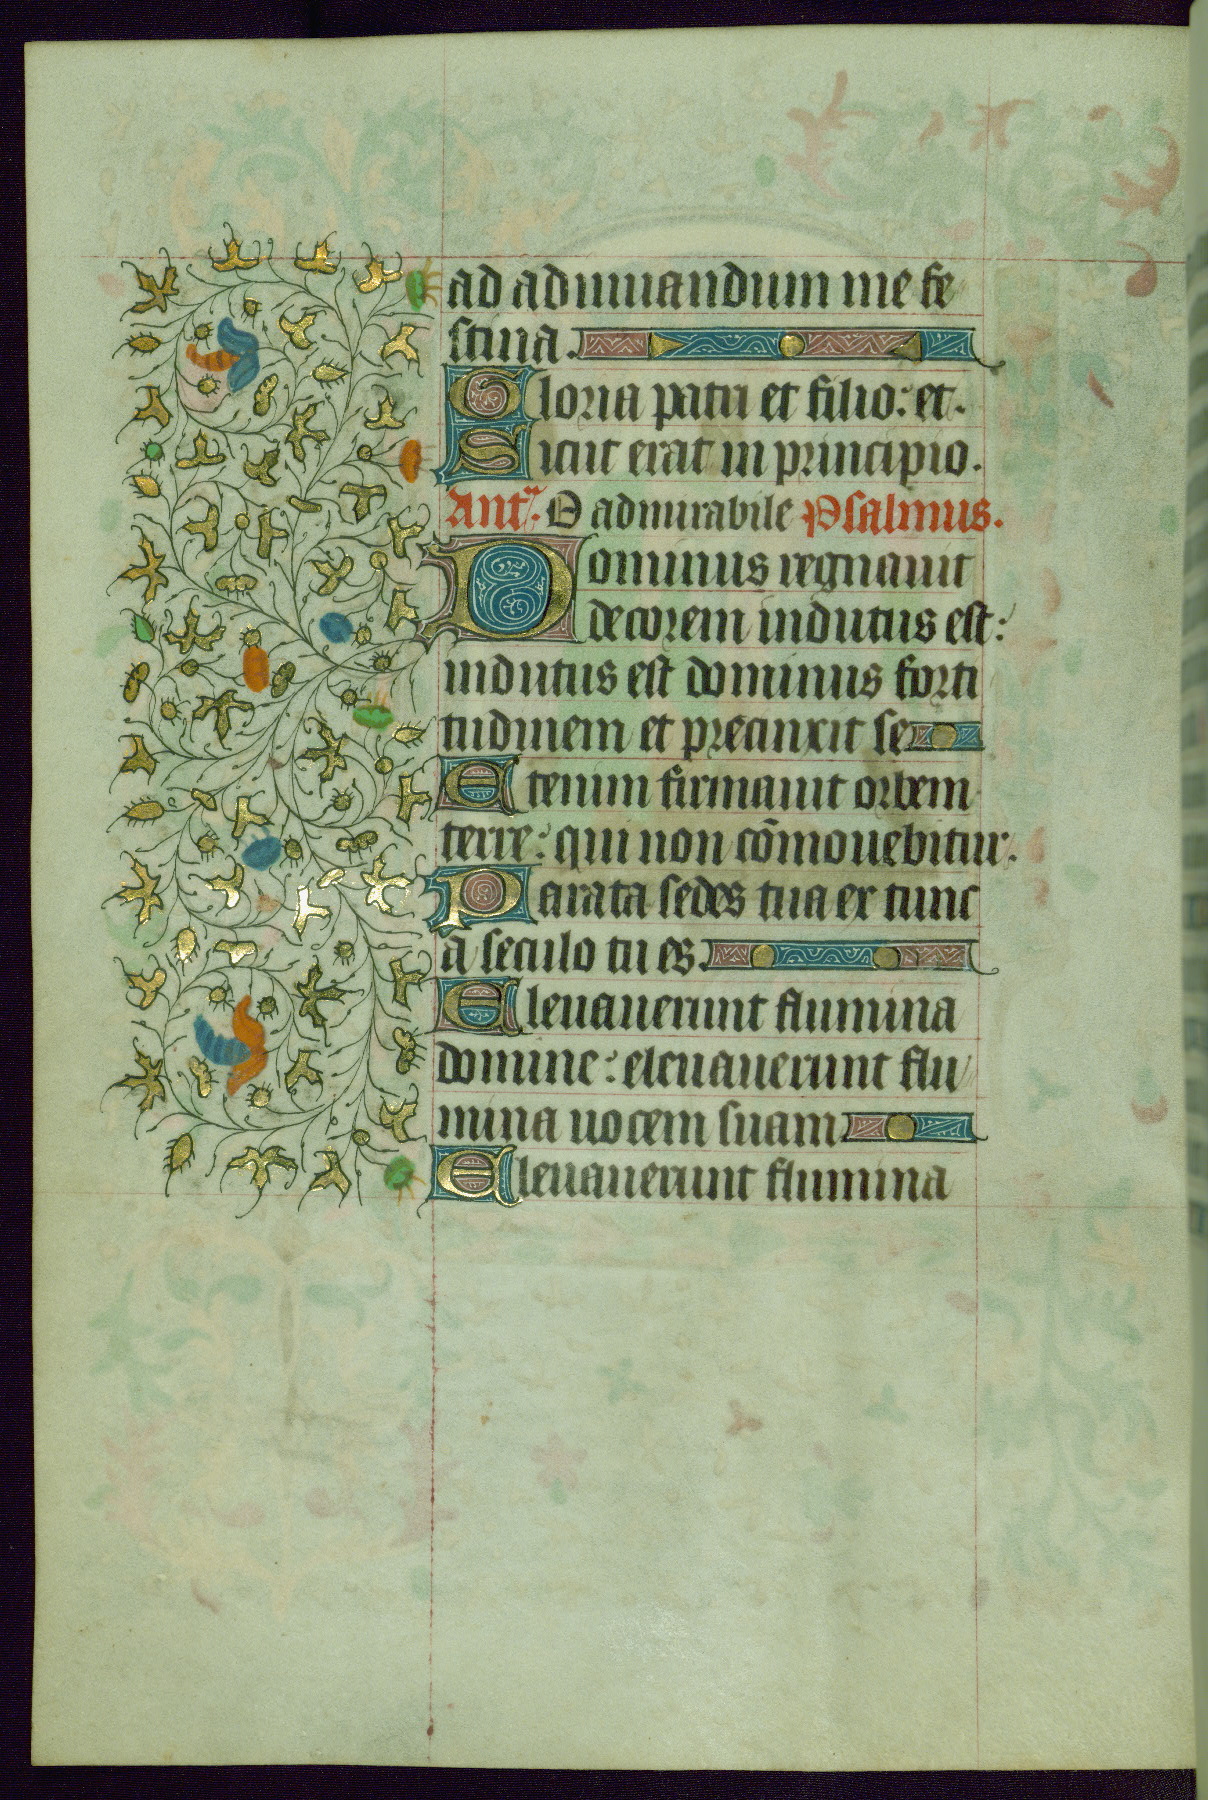 ad adiuuandum me fe
stina.
Gloria patri et filio: et.
Sicut erat in principio.
Ant. O admirabile Psalmus.
Dominus regnauit
decorem indutus est:
indutus est dominus forti
tudinem et precinxit se
Etenim firmauit orbem
terre: qui non cōmouebitur.
Parata sedes tua ex tunc
a seculo tu es.
Eleuauerunt flumina
domine: eleuauerunt flu
mina uocem suam
Eleuauerunt flumina